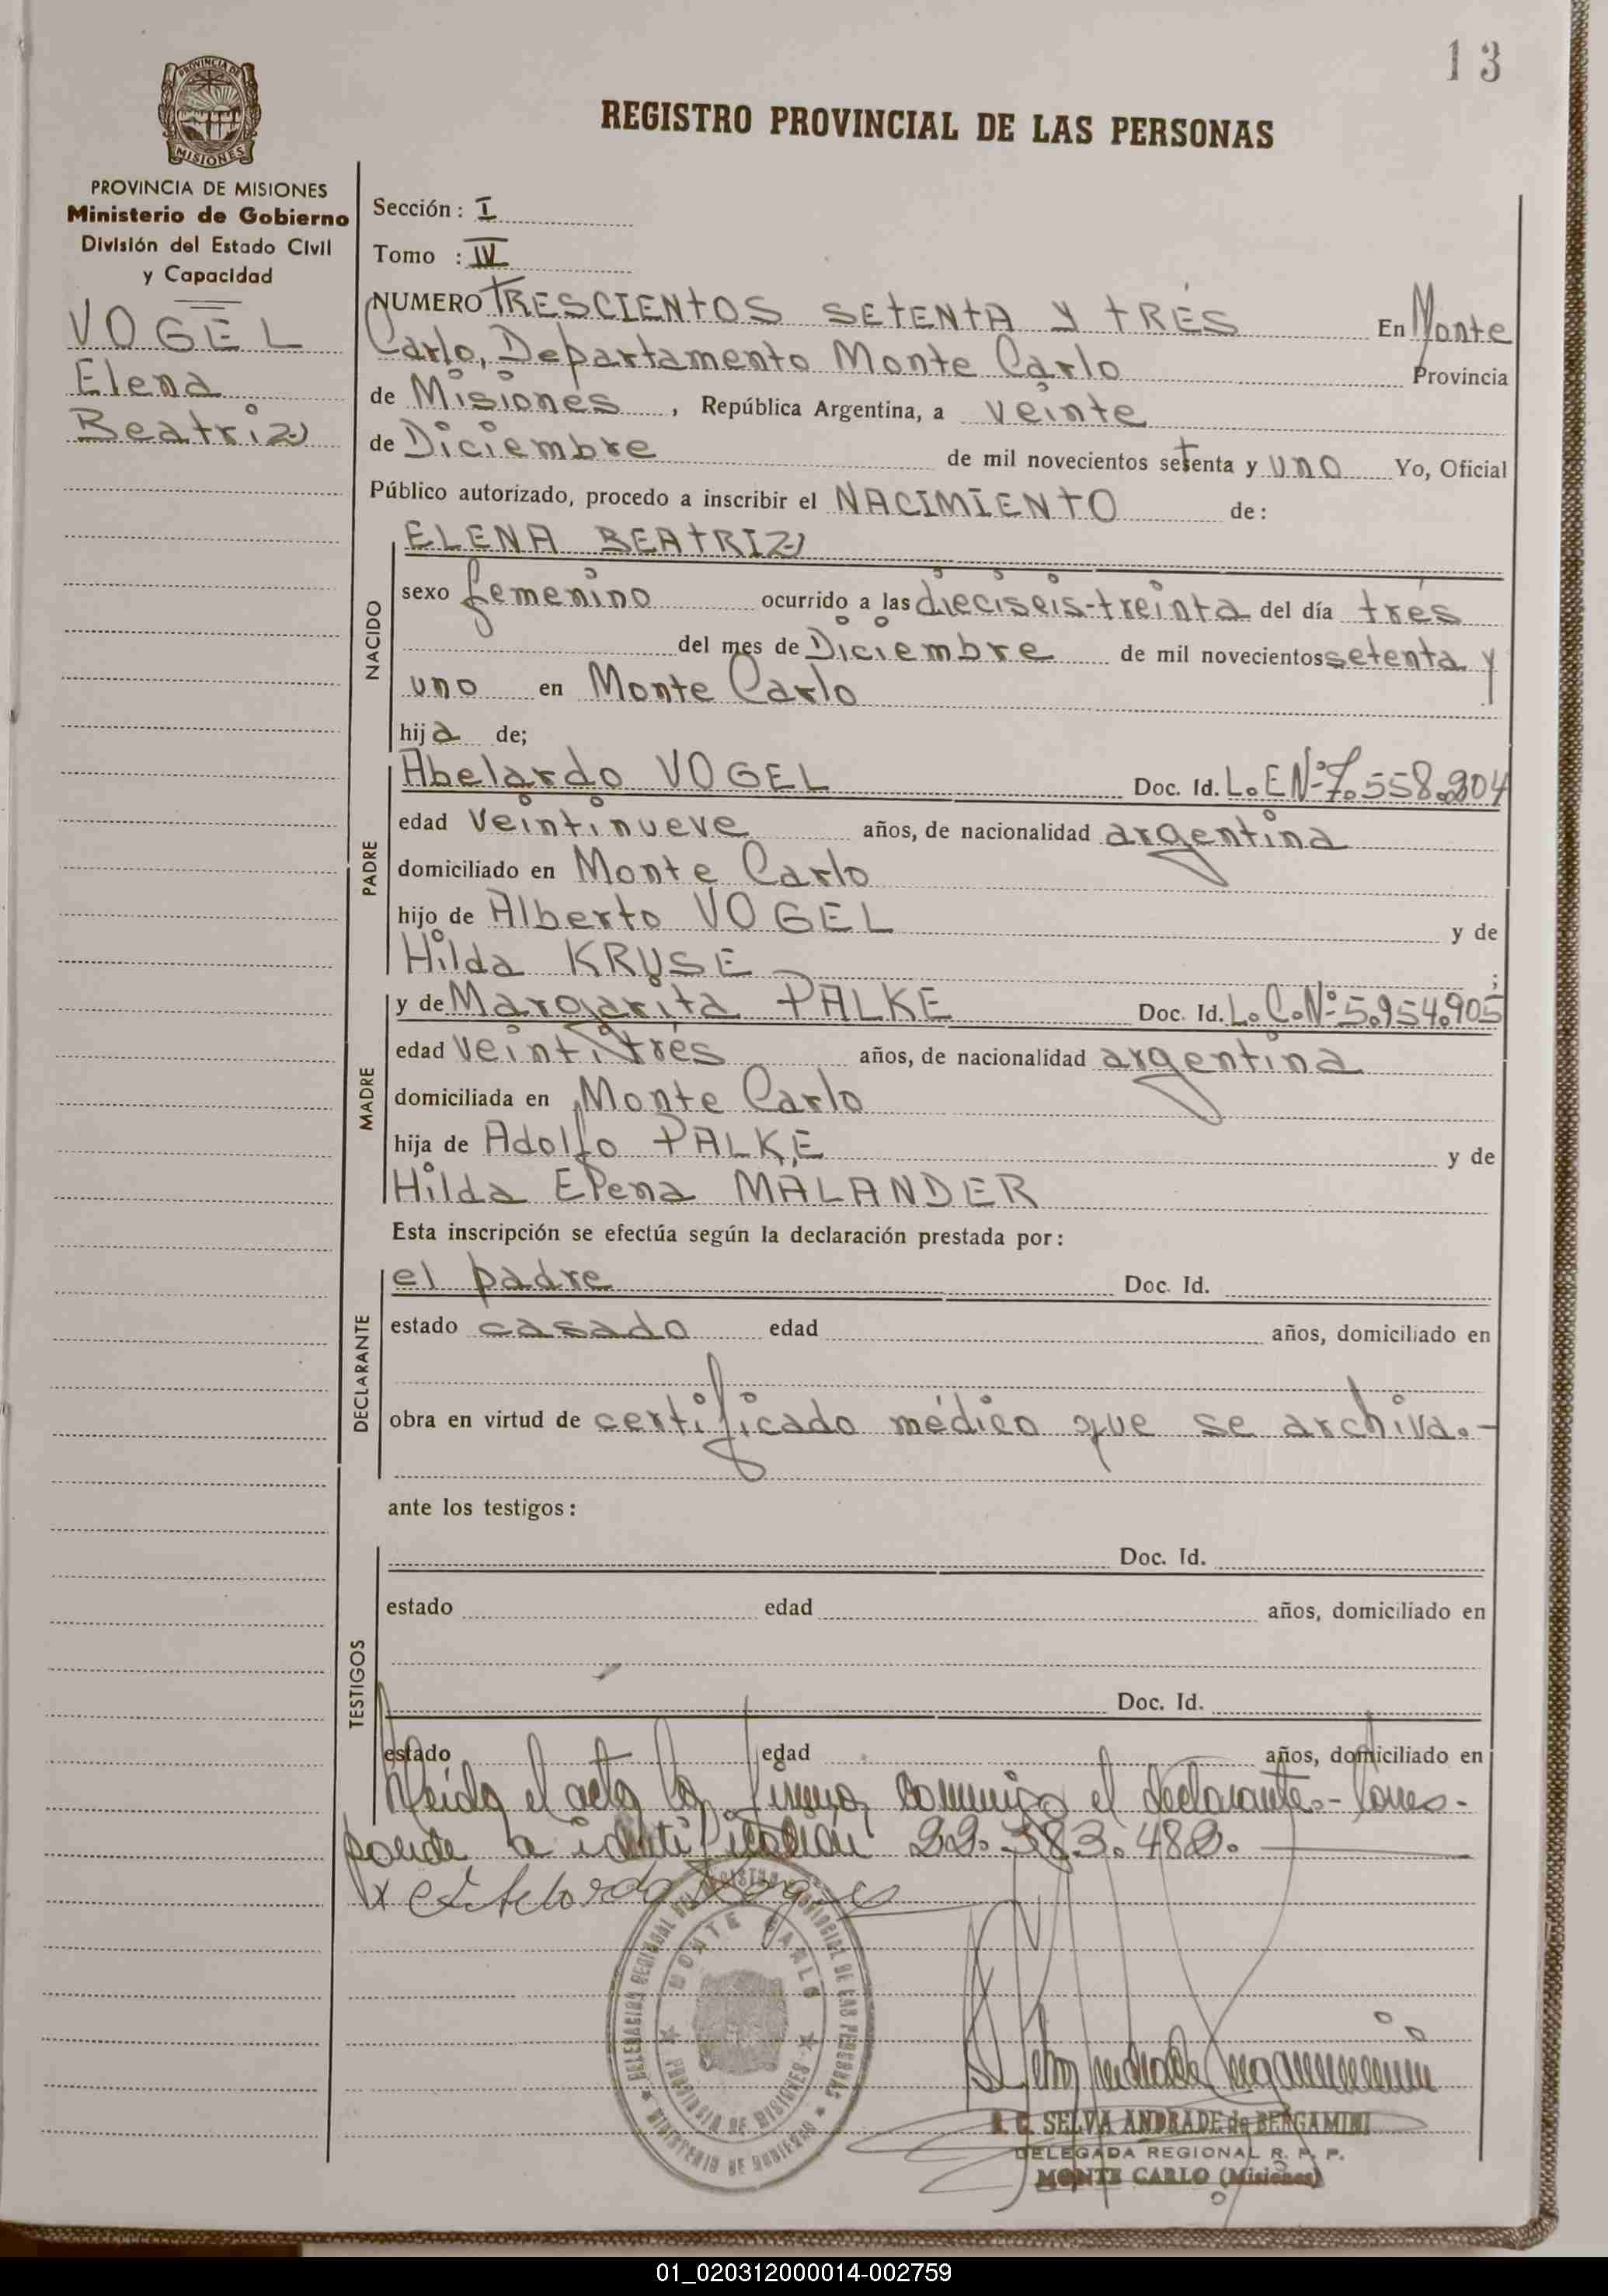 13
PROVINCIA DE
MISIONES
REGISTRO PROVINCIAL DE LAS PERSONAS
PROVINCIA DE MISIONES
Ministerio de Gobierno
División del Estado Civil
y Capacidad
VOGEL
Elena
Beatriz
Sección: I
Tomo : IV
NUMERO TRESCIENTOS SETENTA Y TRES En Monte
Carlo, Departamento Monte Carlo Provincia
de Misiones, República Argentina, a veinte
de Diciembre de mil novecientos setenta y uno Yo, Oficial
Público autorizado, procedo a inscribir el NACIMIENTO de:
NACIDO
ELENA BEATRIZ
sexo femenino ocurrido a las dieciseis-treinta del día tres
del mes de Diciembre de mil novecientos setenta y
uno en Monte Carlo
hija de;
PADRE
Abelardo VOGEL Doc. Id. L.E Nº 7.558.204
edad veintinueve años, de nacionalidad argentina
domiciliado en Monte Carlo
hijo de Alberto VOGEL y de
Hilda KRUSE ;
MADRE
y de Margarita PALKE Doc. Id. L.C.Nº 5.954.905
edad veintitrés años, de nacionalidad argentina
domiciliada en Monte Carlo
hija de Adolfo PALKE y de
Hilda Elena MALANDER
Esta inscripción se efectúa según la declaración prestada por:
DECLARANTE
el padre Doc. Id.
estado casado edad años, domiciliado en
obra en virtud de certificado médico que se archiva.-
ante los testigos:
TESTIGOS
Doc. Id.
estado edad años, domiciliado en
Doc. Id.
estado edad años, domiciliado en
Leída el acta la firma conmigo el declarante.- Corres-
ponde a identificación 22.383.482.
DELEGACION REGIONAL DEL REGISTRO PROVINCIAL DE LAS PERSONAS
MONTE CARLO
PROVINCIA DE MISIONES
MINISTERIO DE GOBIERNO
SELVA ANDRADE de BERGAMINI
DELEGADA REGIONAL R. P. P.
MONTE CARLO (Misiones)
01_020312000014-002759